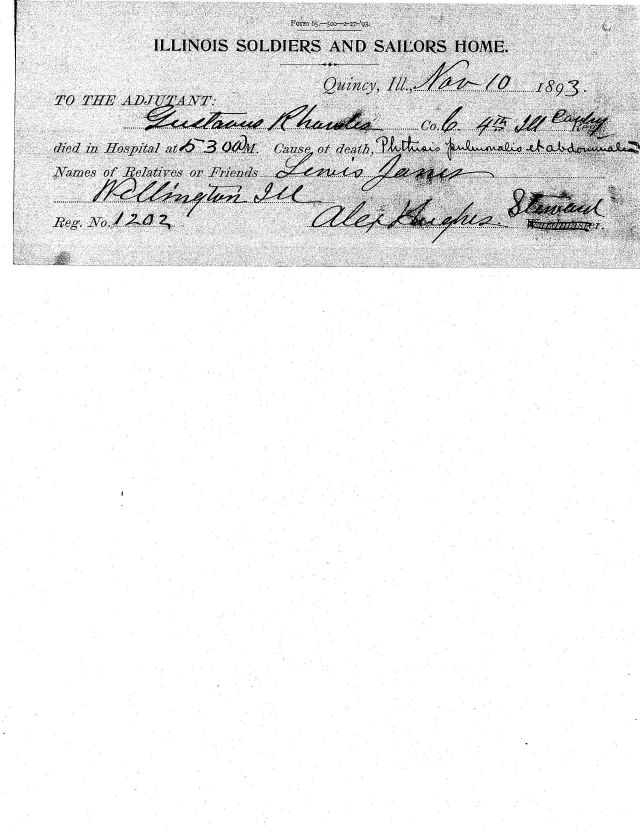 Form 65.—500—2-27-'93.
ILLINOIS SOLDIERS AND SAILORS HOME.
Quincy, Ill., Nov 10 1893.
TO THE ADJUTANT:
Gustavus Rhoades Co. C 4th Ill Cavlry Reg.
died in Hospital at 5 30 M. Cause of death, Phthisis pulmonalis et abdominalis
Names of Relatives or Friends Lewis James
Wellington Ill
Reg. No. 1202 Alex Hughes Steward